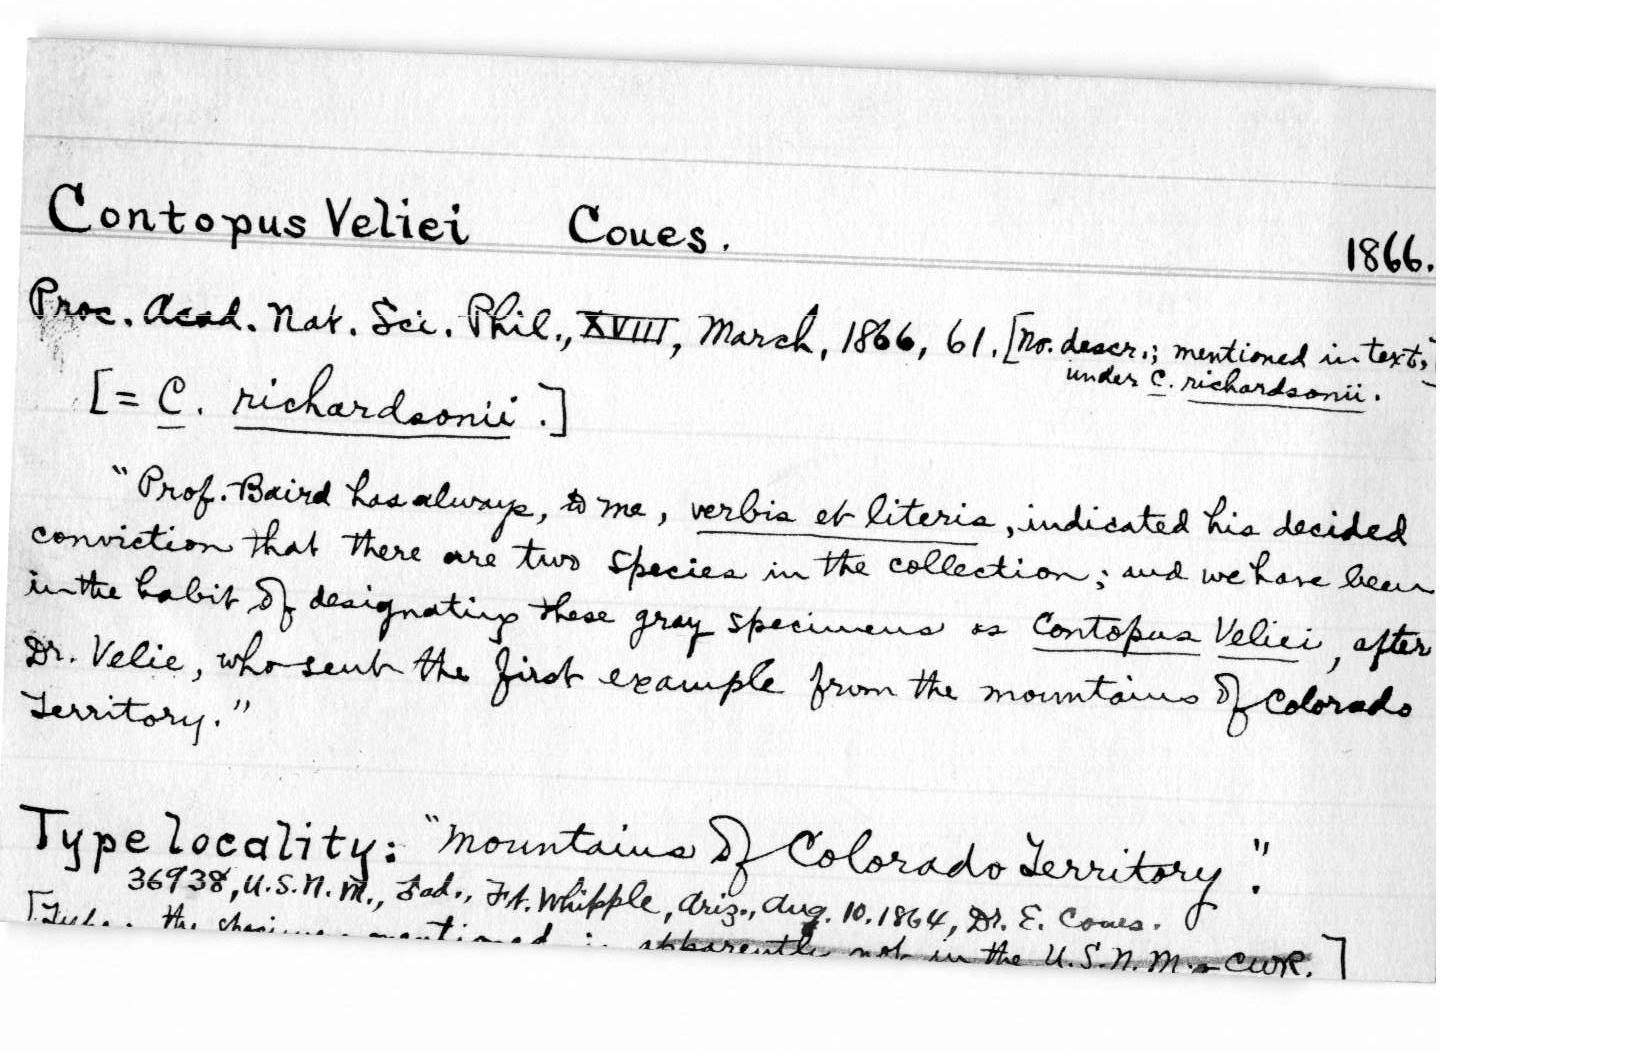 Contopus Veliei Coues. 1866.
Proc. Acad. Nat. Sci. Phil., XVIII, March, 1866, 61. [No. descr.; mentioned in text,]
under C. richardsonii.
[= C. richardsonii.]
"Prof. Baird has always, to me, verbis et literis, indicated his decided
conviction that there are two species in the collection; and we have been
in the habit of designating these gray specimens as Contopus Veliei, after
Dr. Velie, who sent the first example from the mountains of Colorado
Territory."
Type locality: "Mountains of Colorado Territory."
36938, U.S.N.M., ad., Ft. Whipple, Ariz., Aug. 10. 1864, Dr. E. Coues.
the mentioned is apparently not in the U.S.N.M. - CWR.]